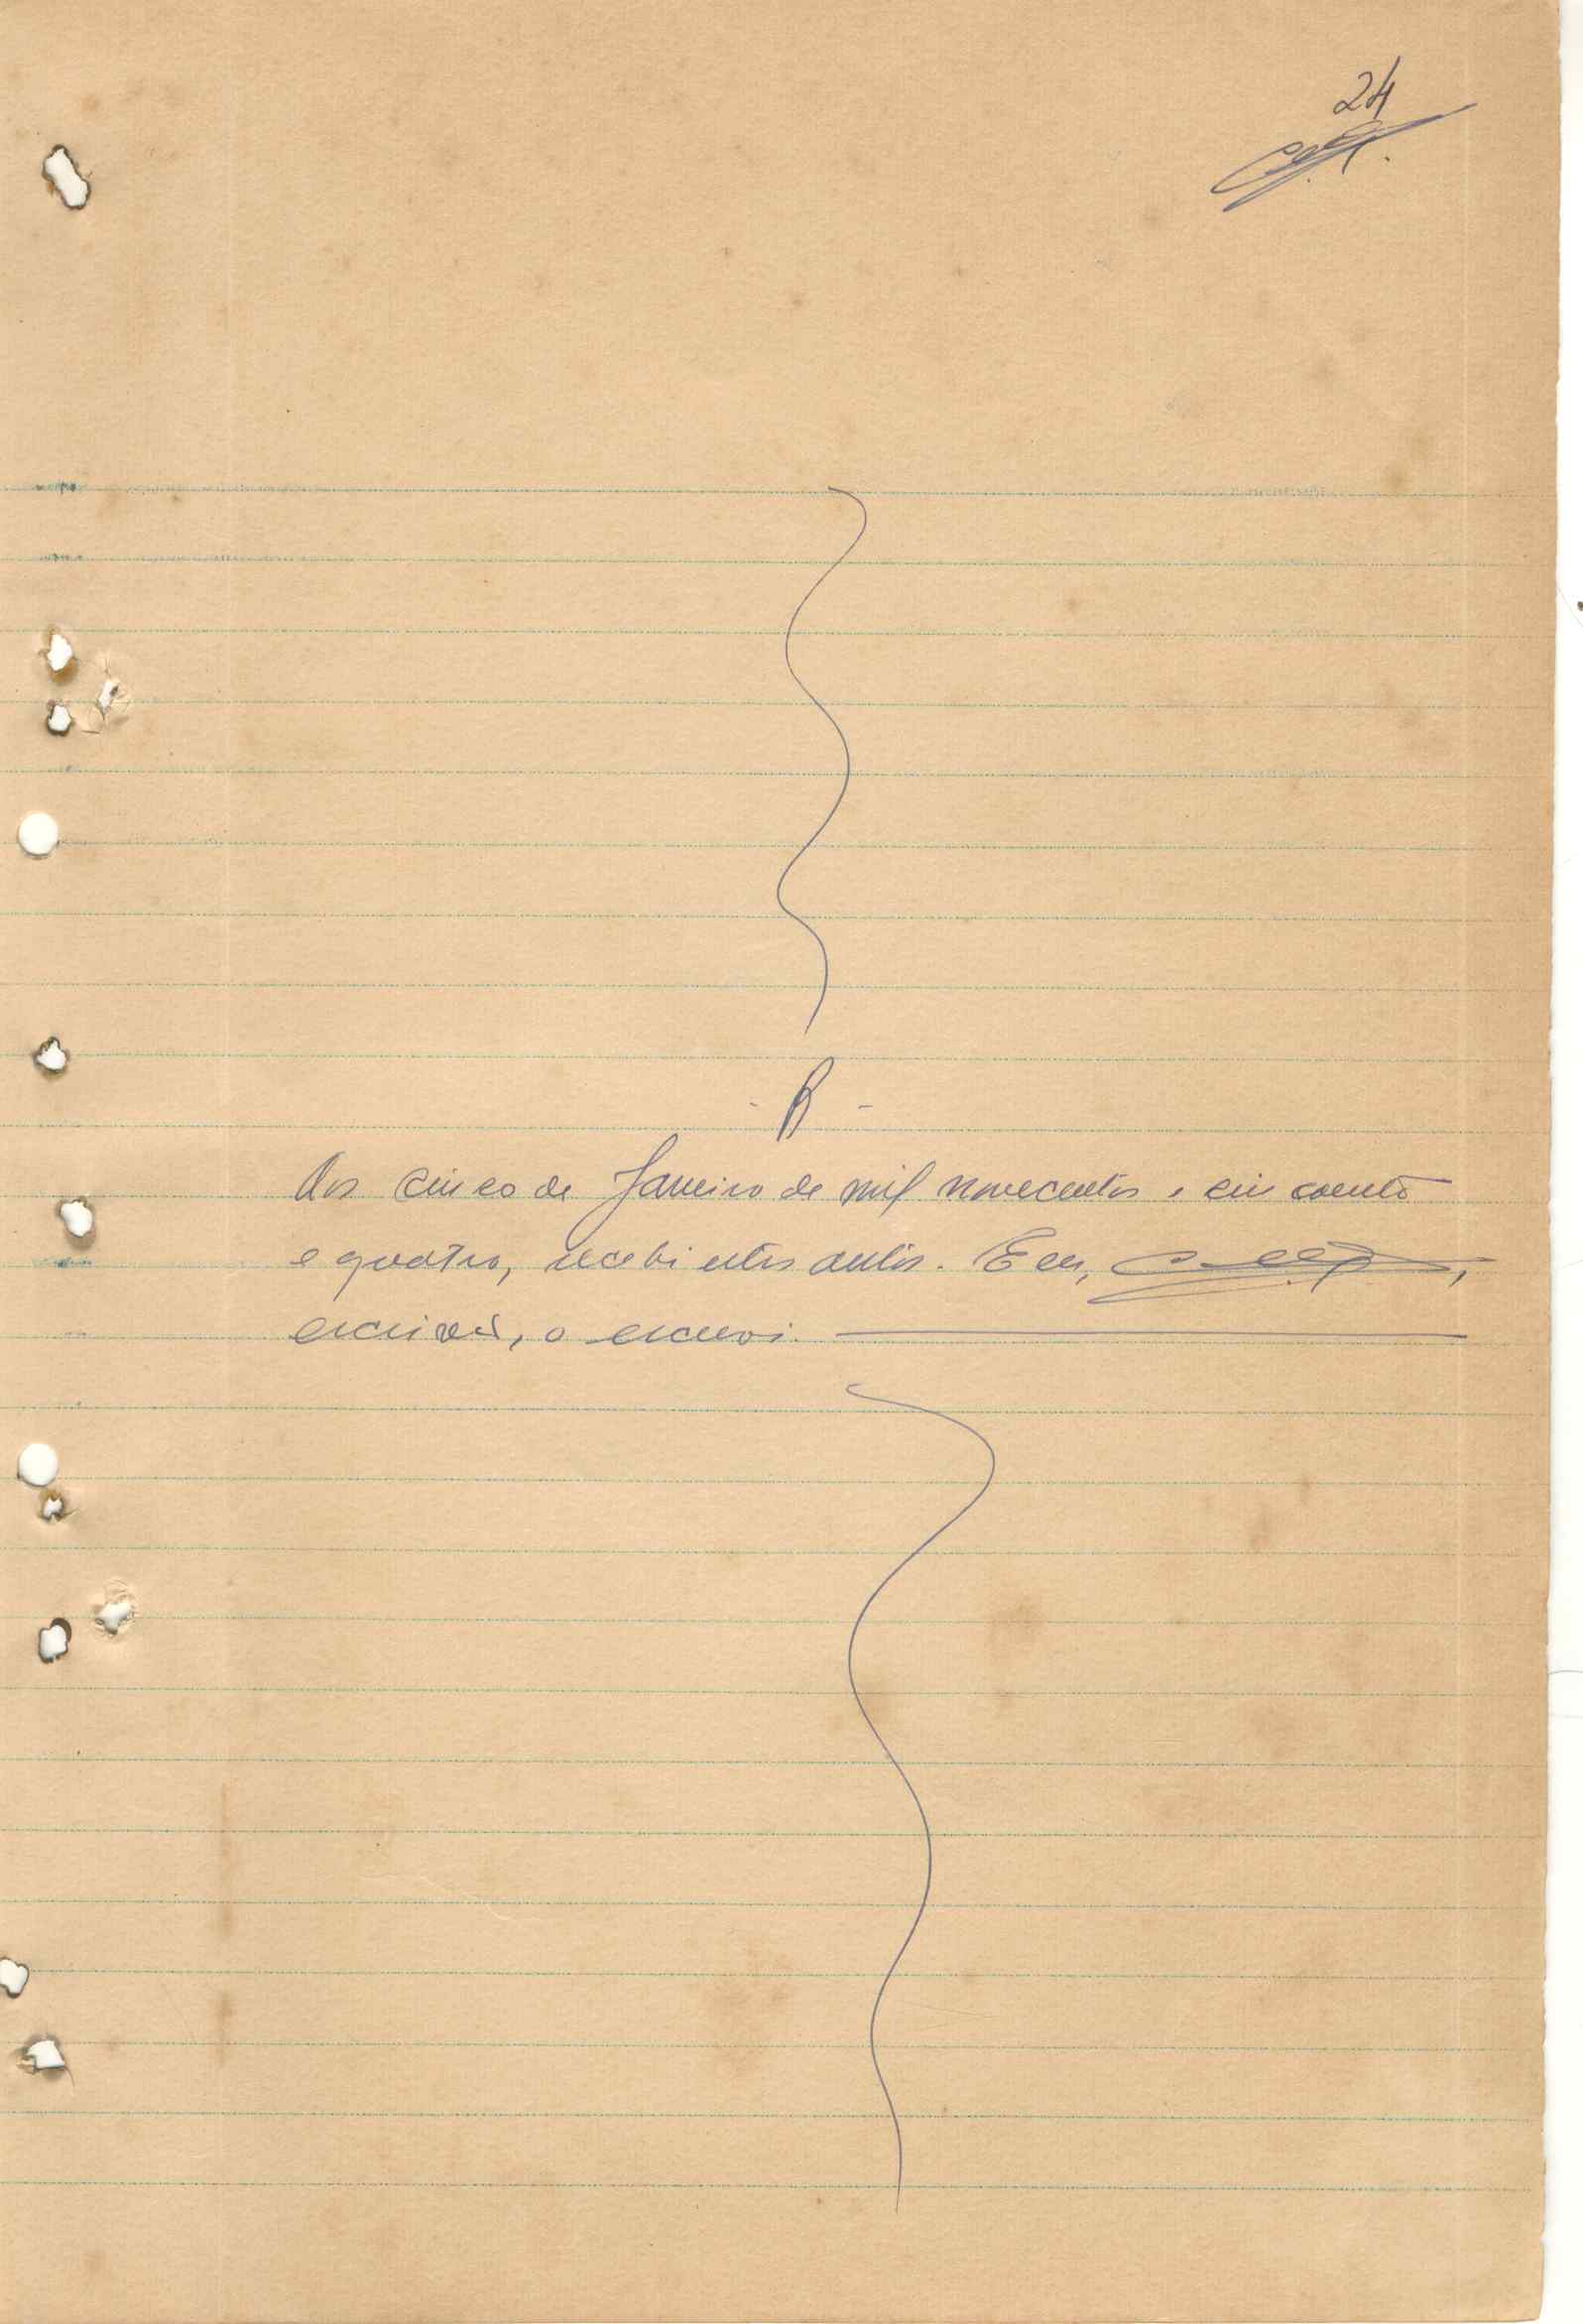 24
- R -
Aos cinco de Janeiro de mil novecentos e cincoenta
e quatro, recebi estes autos. Eu, ,
escrivão, o escrevi.